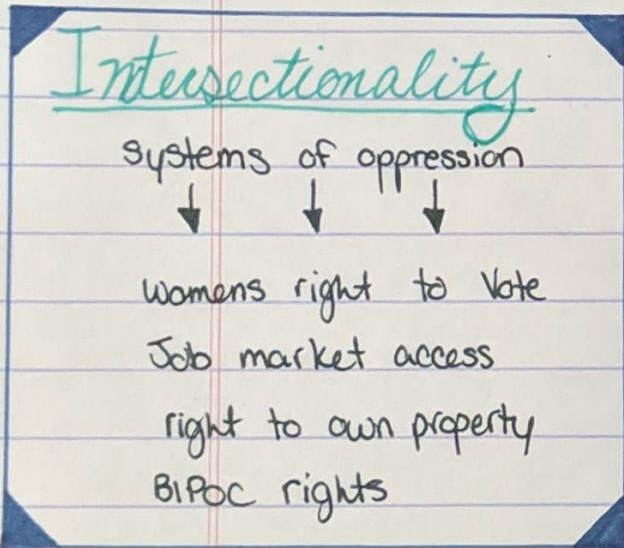 Intersectionality
systems of oppression
↓ ↓ ↓
womens right to Vote
Job market access
right to own property
BIPOC rights